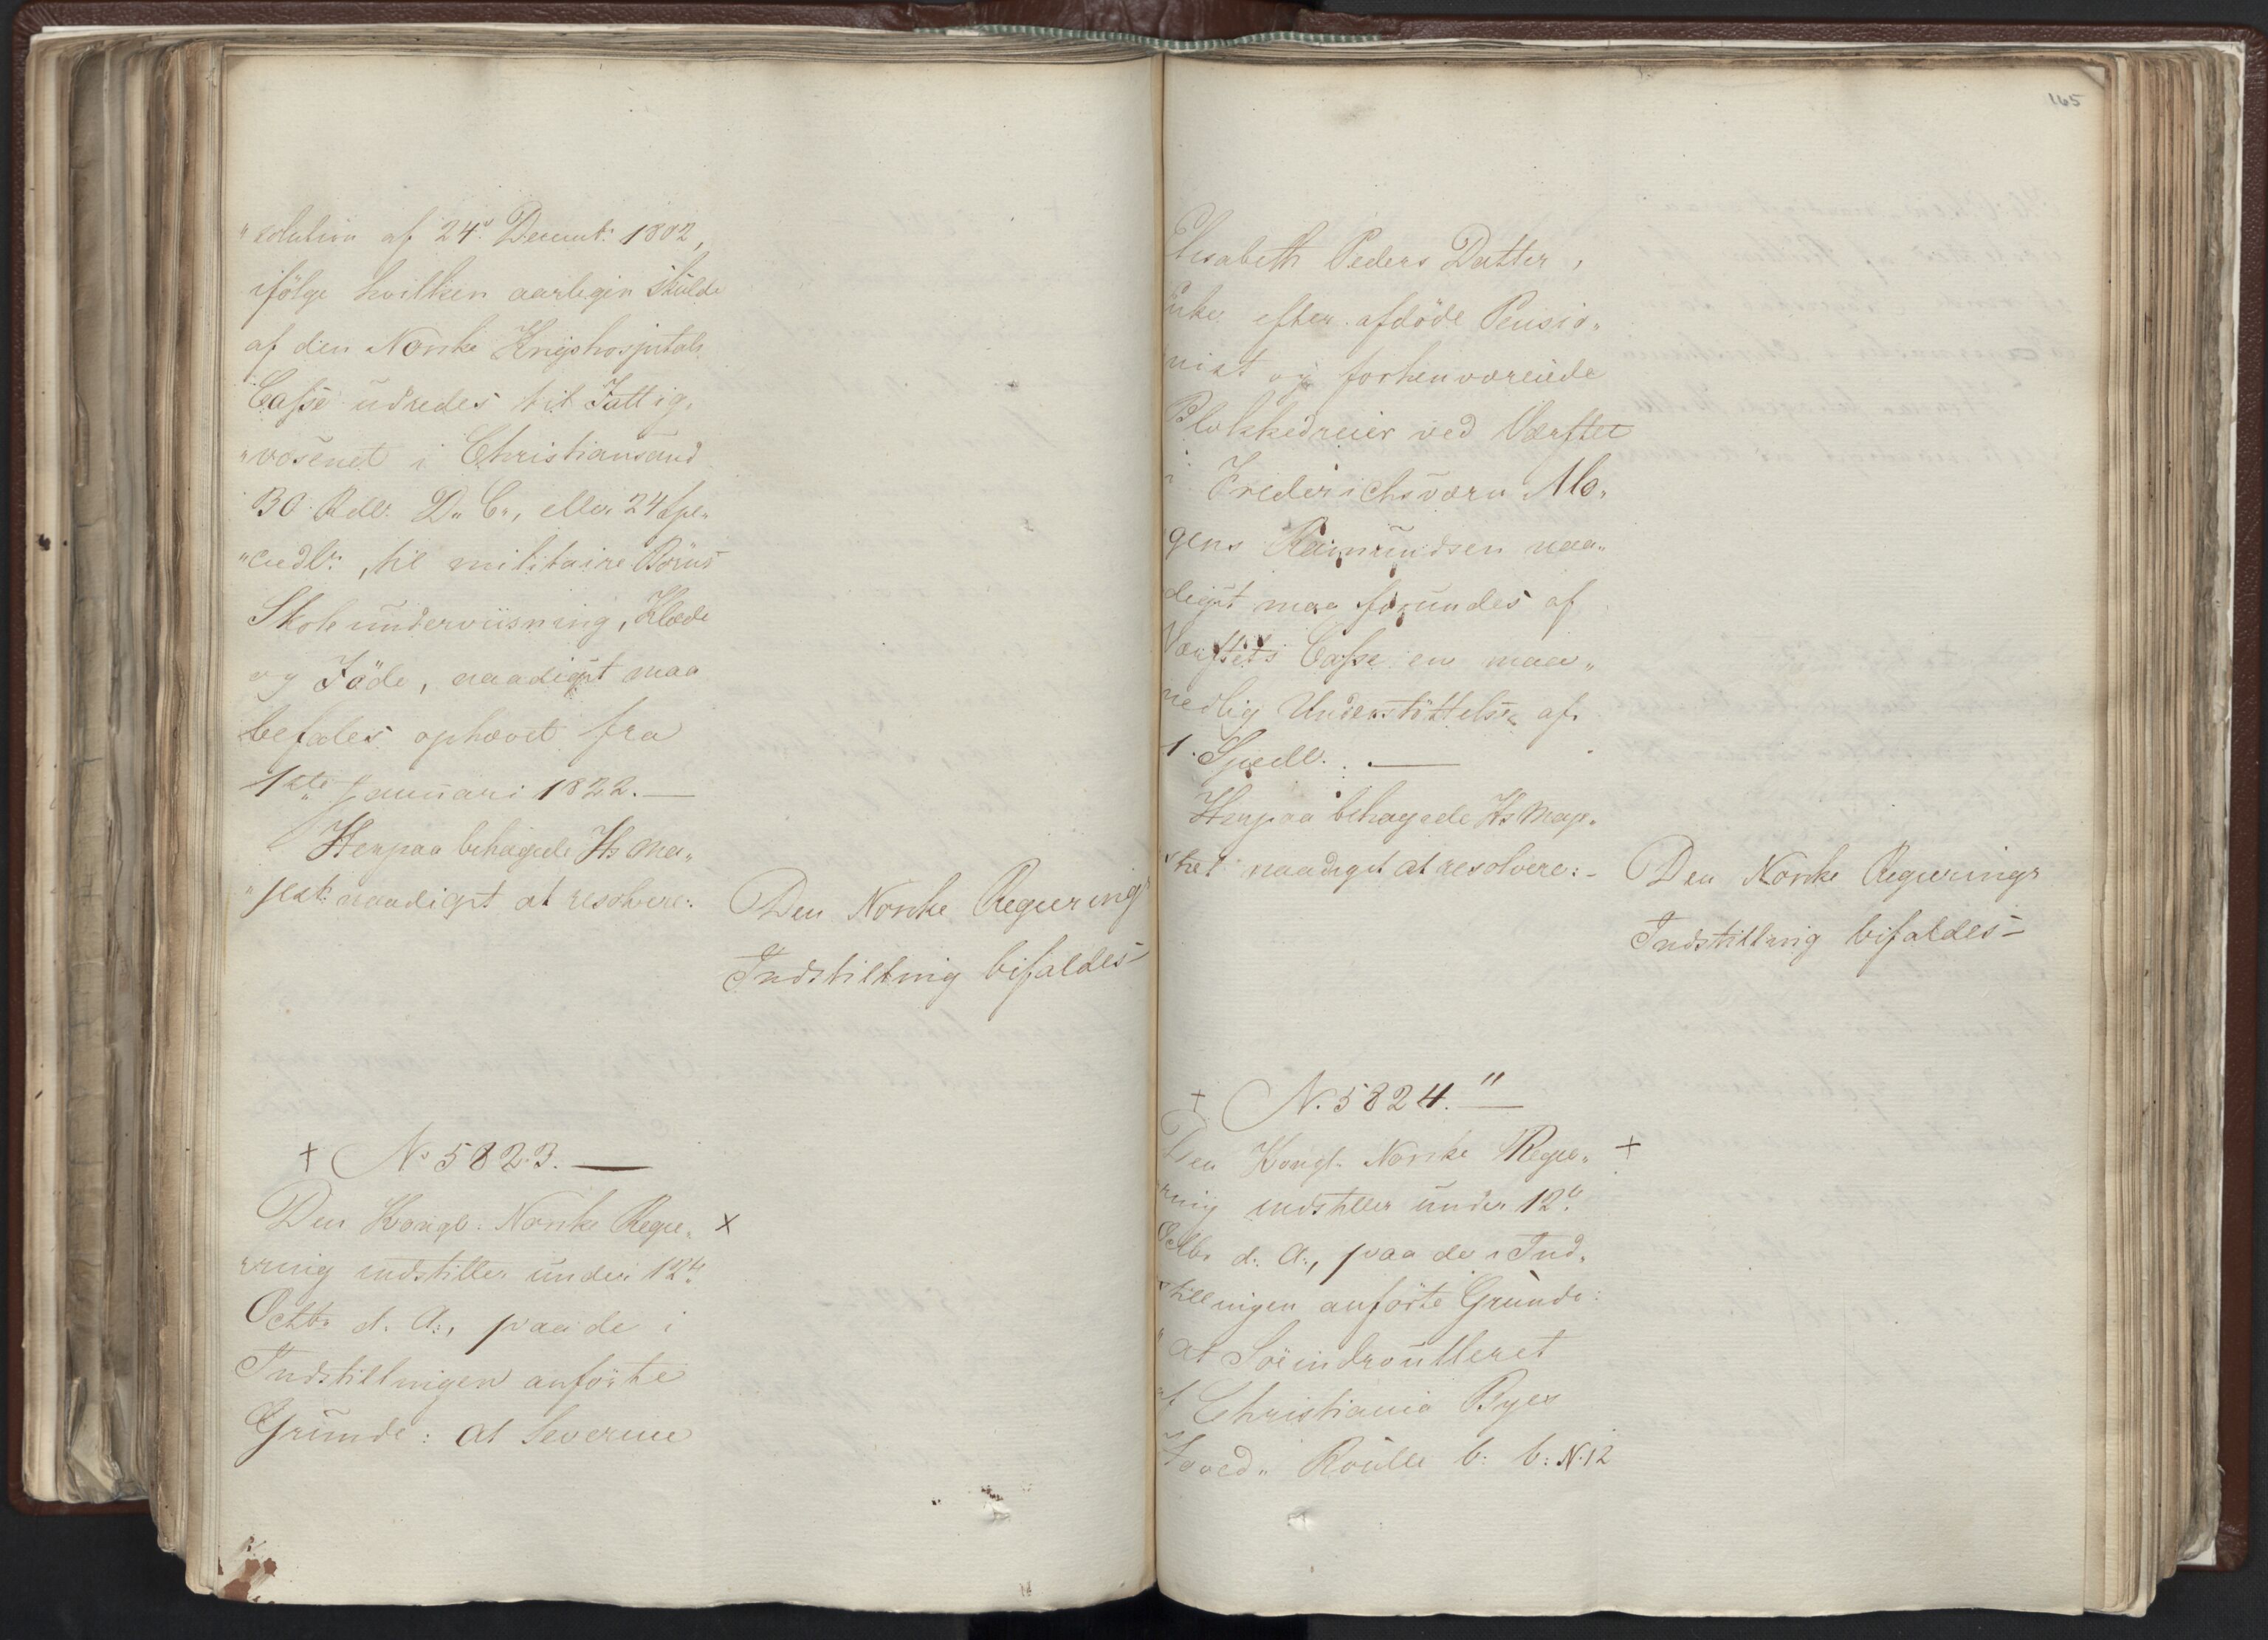 "solution af 24de Decemb: 1802,
ifölge hvilken aarligen skulde
af den Norske Krigshospitals
Casse udredes til Fattig„
"væsenet i Christiansand
30 Rdlr. D. C., eller 24 Spe„
"ciedlr:, til militaire Börns
Skoleunderviisning, Klæde
og Föde, naadigst maa
befales ophævet fra
1ste Januari 1822. —
Herpaa behagede Hs Ma„
"jest: naadigst at resolvere:
Den Norske Regierings
Indstilling bifaldes
+ No 5823. —
Den Kongl: Norske Regie„ x
ring indstiller under 12te
Octbr d. A., paa de i
Indstillingen anförte
Grunde: at Severine
165
Elisabeth Peders Datter,
Enke efter afdöde Pensio„
nist og forhenværende
Blokkedreier ved Værftet
i Frederichsværn Mo„
gens Raimundsen naa„
digst maa forundes af
Værftets Casse en maa„
nedlig Understöttelse af
1. Spedlr. —
Herpaa behagede Hs Maje„
"stet naadigst at resolvere: –
Den Norske Regierings
Indstilling bifaldes
+ N. 5824." —
Den Kongl. Norske Regie„ +
ring indstiller under 12te
Octbr d. A., paa de i Ind„
"stillingen anförte Grunde:
" at Söeindroulleret
af Christiania Byes
Hoved„ Roulle b: b: N. 12